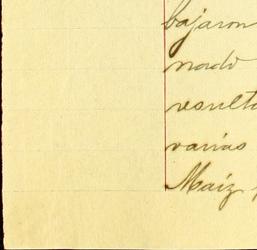 bajaron
nado
resulta
varias
Maiz